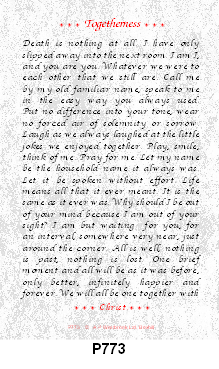 Togetherness
Death is nothing at all. I have only
slipped away into the next room. I am I,
and you are you. Whatever we were to
each other that we still are. Call me
by my old familiar name, speak to me
in the easy way you always used.
Put no difference into your tone, wear
no forced air of solemnity or sorrow.
Laugh as we always laughed at the little
jokes we enjoyed together. Play, smile,
think of me. Pray for me. Let my name
be the household name it always was.
Let it be spoken without effort. Life
means all that it ever meant. It is the
same as it ever was. Why should I be out
of your mind because I am out of your
sight? I am but waiting for you, for
an interval, somewhere very near, just
around the corner. All is well, nothing
is past, nothing is lost. One brief
moment and all will be as it was before,
only better, infinitely happier and
forever. We will all be one together with
Christ
P773